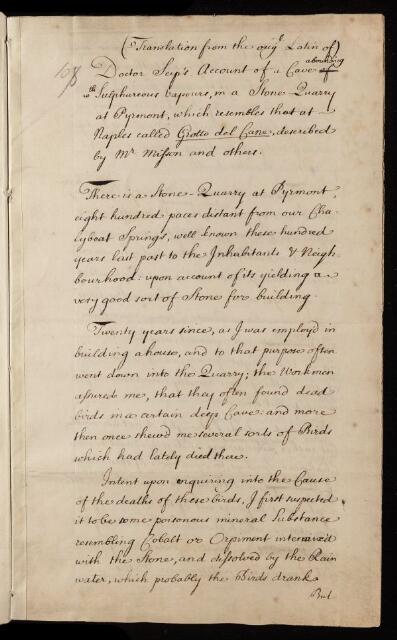 (Translation from the orig.l Latin of)
Doctor Seip's Account of a Cave abounding
wth Sulphureous vapours, in a Stone-Quarry
at Pyrmont, which resembles that at
Naples called Grotto del Cane, described
by Mr. Misson and others.
There is a Stone-Quarry at Pyrmont,
eight hundred paces distant from our Cha-
lybeat Springs, well known these hundred
years last past to the Inhabitants & Neigh-
bourhood: upon account of its yielding a
very good sort of Stone for building.
Twenty years since, as I was employ'd in
building a house, and to that purpose often
went down into the Quarry; the Workmen
assured me, that they often found dead
birds in a certain deep Cave: and more
then once shew'd me several sorts of Birds
which had lately died there.
Intent upon enquiring into the Cause
of the deaths of these birds, I first suspected
it to be some poisonous mineral Substance
resembling Cobalt or Orpiment
with the Stone, and dissolved by the Rain
water, which probably the Birds drank.
But